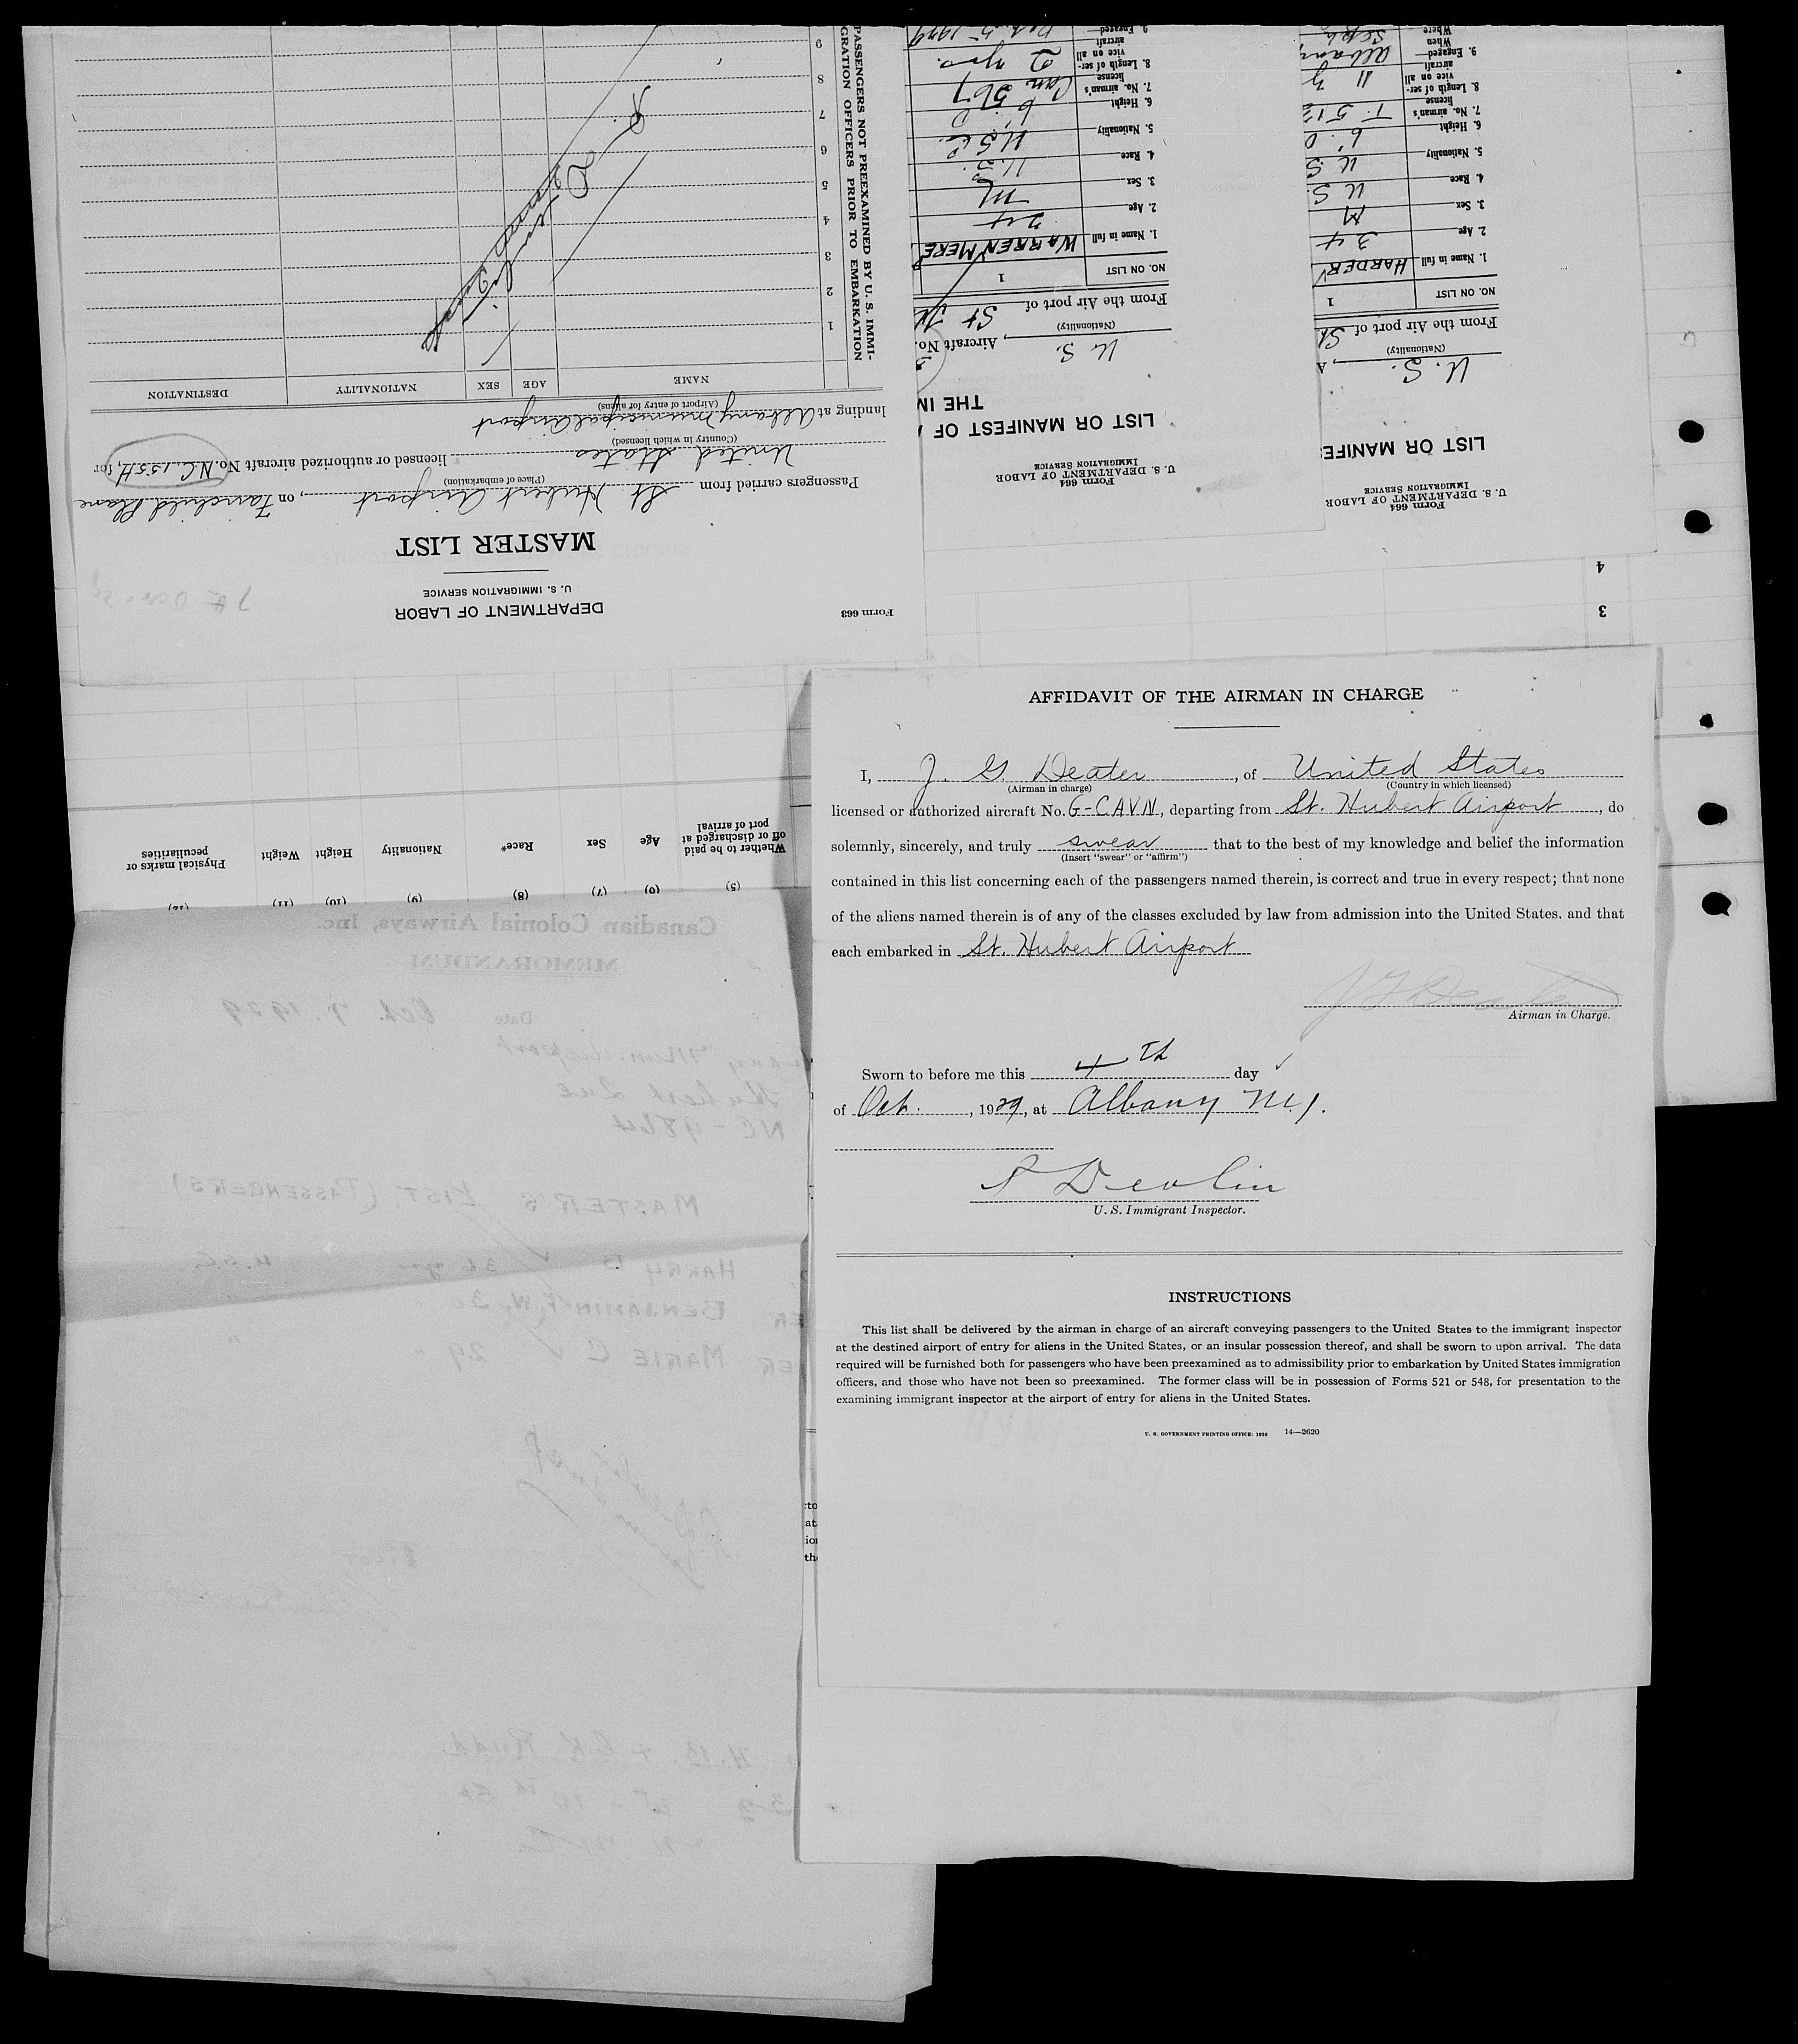 AFFIDAVIT OF THE AIRMAN IN CHARGE
I, J. G. Deater, of United States
(Airman in charge) (Country in which licensed)
licensed or authorized aircraft No. G-CAVN, departing from St. Hubert Airport, do
solemnly, sincerely, and truly swear that to the best of my knowledge and belief the information
(Insert "swear" or "affirm")
contained in this list concerning each of the passengers named therein, is correct and true in every respect; that none
of the aliens named therein is of any of the classes excluded by law from admission into the United States, and that
each embarked in St. Hubert Airport
J G Deater
Airman in Charge.
Sworn to before me this 4th day
of Oct., 1929, at Albany N.Y.
Devlin
U. S. Immigrant Inspector.
INSTRUCTIONS
This list shall be delivered by the airman in charge of an aircraft conveying passengers to the United States to the immigrant inspector
at the destined airport of entry for aliens in the United States, or an insular possession thereof, and shall be sworn to upon arrival. The data
required will be furnished both for passengers who have been preexamined as to admissibility prior to embarkation by United States immigration
officers, and those who have not been so preexamined. The former class will be in possession of Forms 521 or 548, for presentation to the
examining immigrant inspector at the airport of entry for aliens in the United States.
U. S. GOVERNMENT PRINTING OFFICE: 1929 14—2620
Form 663
DEPARTMENT OF LABOR
U. S. IMMIGRATION SERVICE
MASTER LIST
Passengers carried from St. Hubert Airport, on Fairchild Plane
(Place of embarkation)
United States licensed or authorized aircraft No. N.C. 155H, for
(Country in which licensed)
landing at Albany Municipal Airport
(Airport of entry for aliens)
NAME AGE SEX NATIONALITY DESTINATION
PASSENGERS NOT PREEXAMINED BY U. S. IMMI-
GRATION OFFICERS PRIOR TO EMBARKATION
1
2
3
4
5
6
7
8
9
Form 664
U. S. DEPARTMENT OF LABOR
IMMIGRATION SERVICE
LIST OR MANIFEST OF
THE
U. S., Aircraft No.
(Nationality)
From the Air port of St
NO. ON LIST 1
1. Name in full WARREN MERE
2. Age 24
3. Sex M
4. Race U.S.
5. Nationality U S C
6. Height 6' 0
7. No. airman's license Com. 567
8. Length of ser-vice on all aircraft 2 yrs.
9. Engaged
Form 664
U. S. DEPARTMENT OF LABOR
IMMIGRATION SERVICE
LIST OR MANIFES
U. S.
(Nationality)
From the Air port of St
NO. ON LIST 1
1. Name in full HARDER
2. Age 34
3. Sex M
4. Race U S
5. Nationality U S
6. Height 6' 0
7. No. airman's license T. 512
8. Length of ser-vice on all aircraft 11 y
9. Engaged When Where Albany Sept
3
4
(5) (6) (7) (8) (9) (10) (11) (12)
Whether to be paid off or discharged at port of arrival
Age
Sex
Race*
Nationality
Height
Weight
Physical marks or peculiarities
Canadian Colonial Airways, Inc.
MEMORANDUM
Date Oct. 7. 1929
Mun. Airport
Hubert Que
NC-9864
MASTERS LIST. (PASSENGERS)
HARRY B 36 yrs U.S.C.
BENJAMIN F.W. 30 "
MARIE C 29 " "